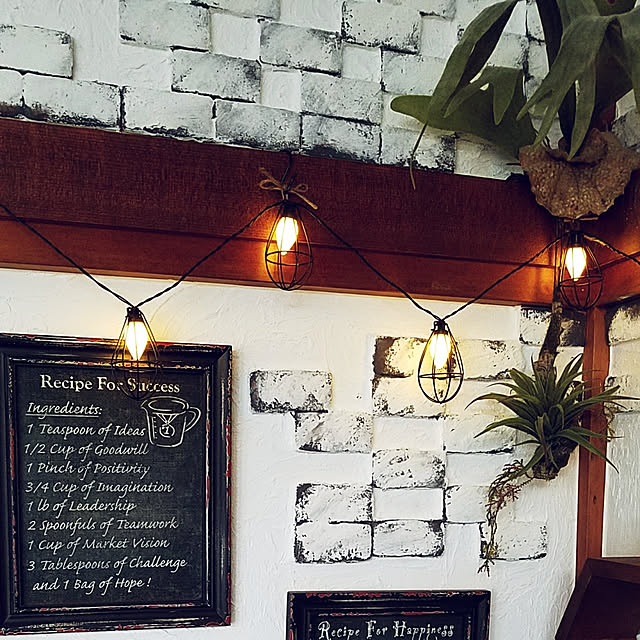 Recipe For Success
Ingredients:
1 Teaspoon of Ideas
1/2 Cup of Goodwill
1 Pinch of Positivity
3/4 Cup of Imagination
1 lb of Leadership
2 Spoonfuls of Teamwork
1 Cup of Market Vision
3 Tablespoons of Challenge
and 1 Bag of Hope !
Recipe For Happiness